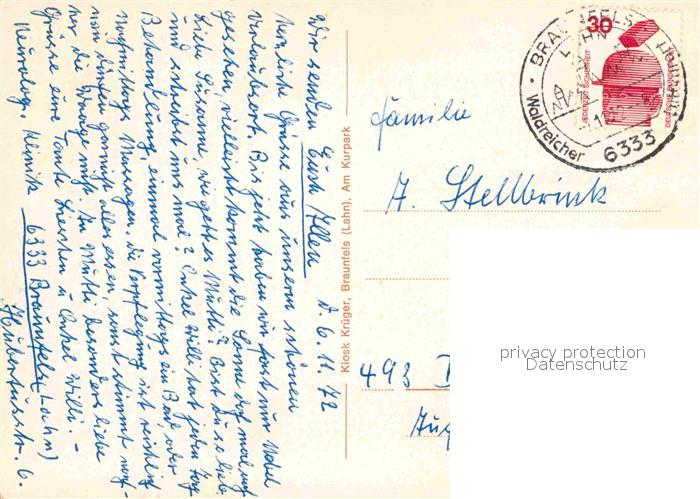 D. 6.11.72
Wir senden Euch Allen
herzliche Grüsse aus unserm schönen
Urlaubsort. Bis jetzt haben wir fast nur Nebel
gesehen, vielleicht kommt die Sonne doch mal auf
Liebe Susanne, wie geht es Mutti? Bist Du so lieb
und schreibst uns mal? Onkel Willi hat jeden Tag
Behandlung, einmal vormittags ein Bad, oder
nachmittags Massagen, die Verpflegung ist reichlich
man dürfen garnicht alles essen, sonst stimmt nach-
her die Waage nicht. An Mutti besonders liebe
Grüsse eure Tante u Onkel Willi. -
Neurolog. Klinik 6333 Braunfels (Lahn)
Hubertusstr. 6.
Kiosk Krüger, Braunfels (Lahn), Am Kurpark
Familie
A. Stellbrink
493 D
Aug
30
JEDERZEIT SICHERHEIT
DEUTSCHE BUNDESPOST
BRAUNFELS
LAHN
Waldreicher
Luftkurort
6333
privacy protection
Datenschutz